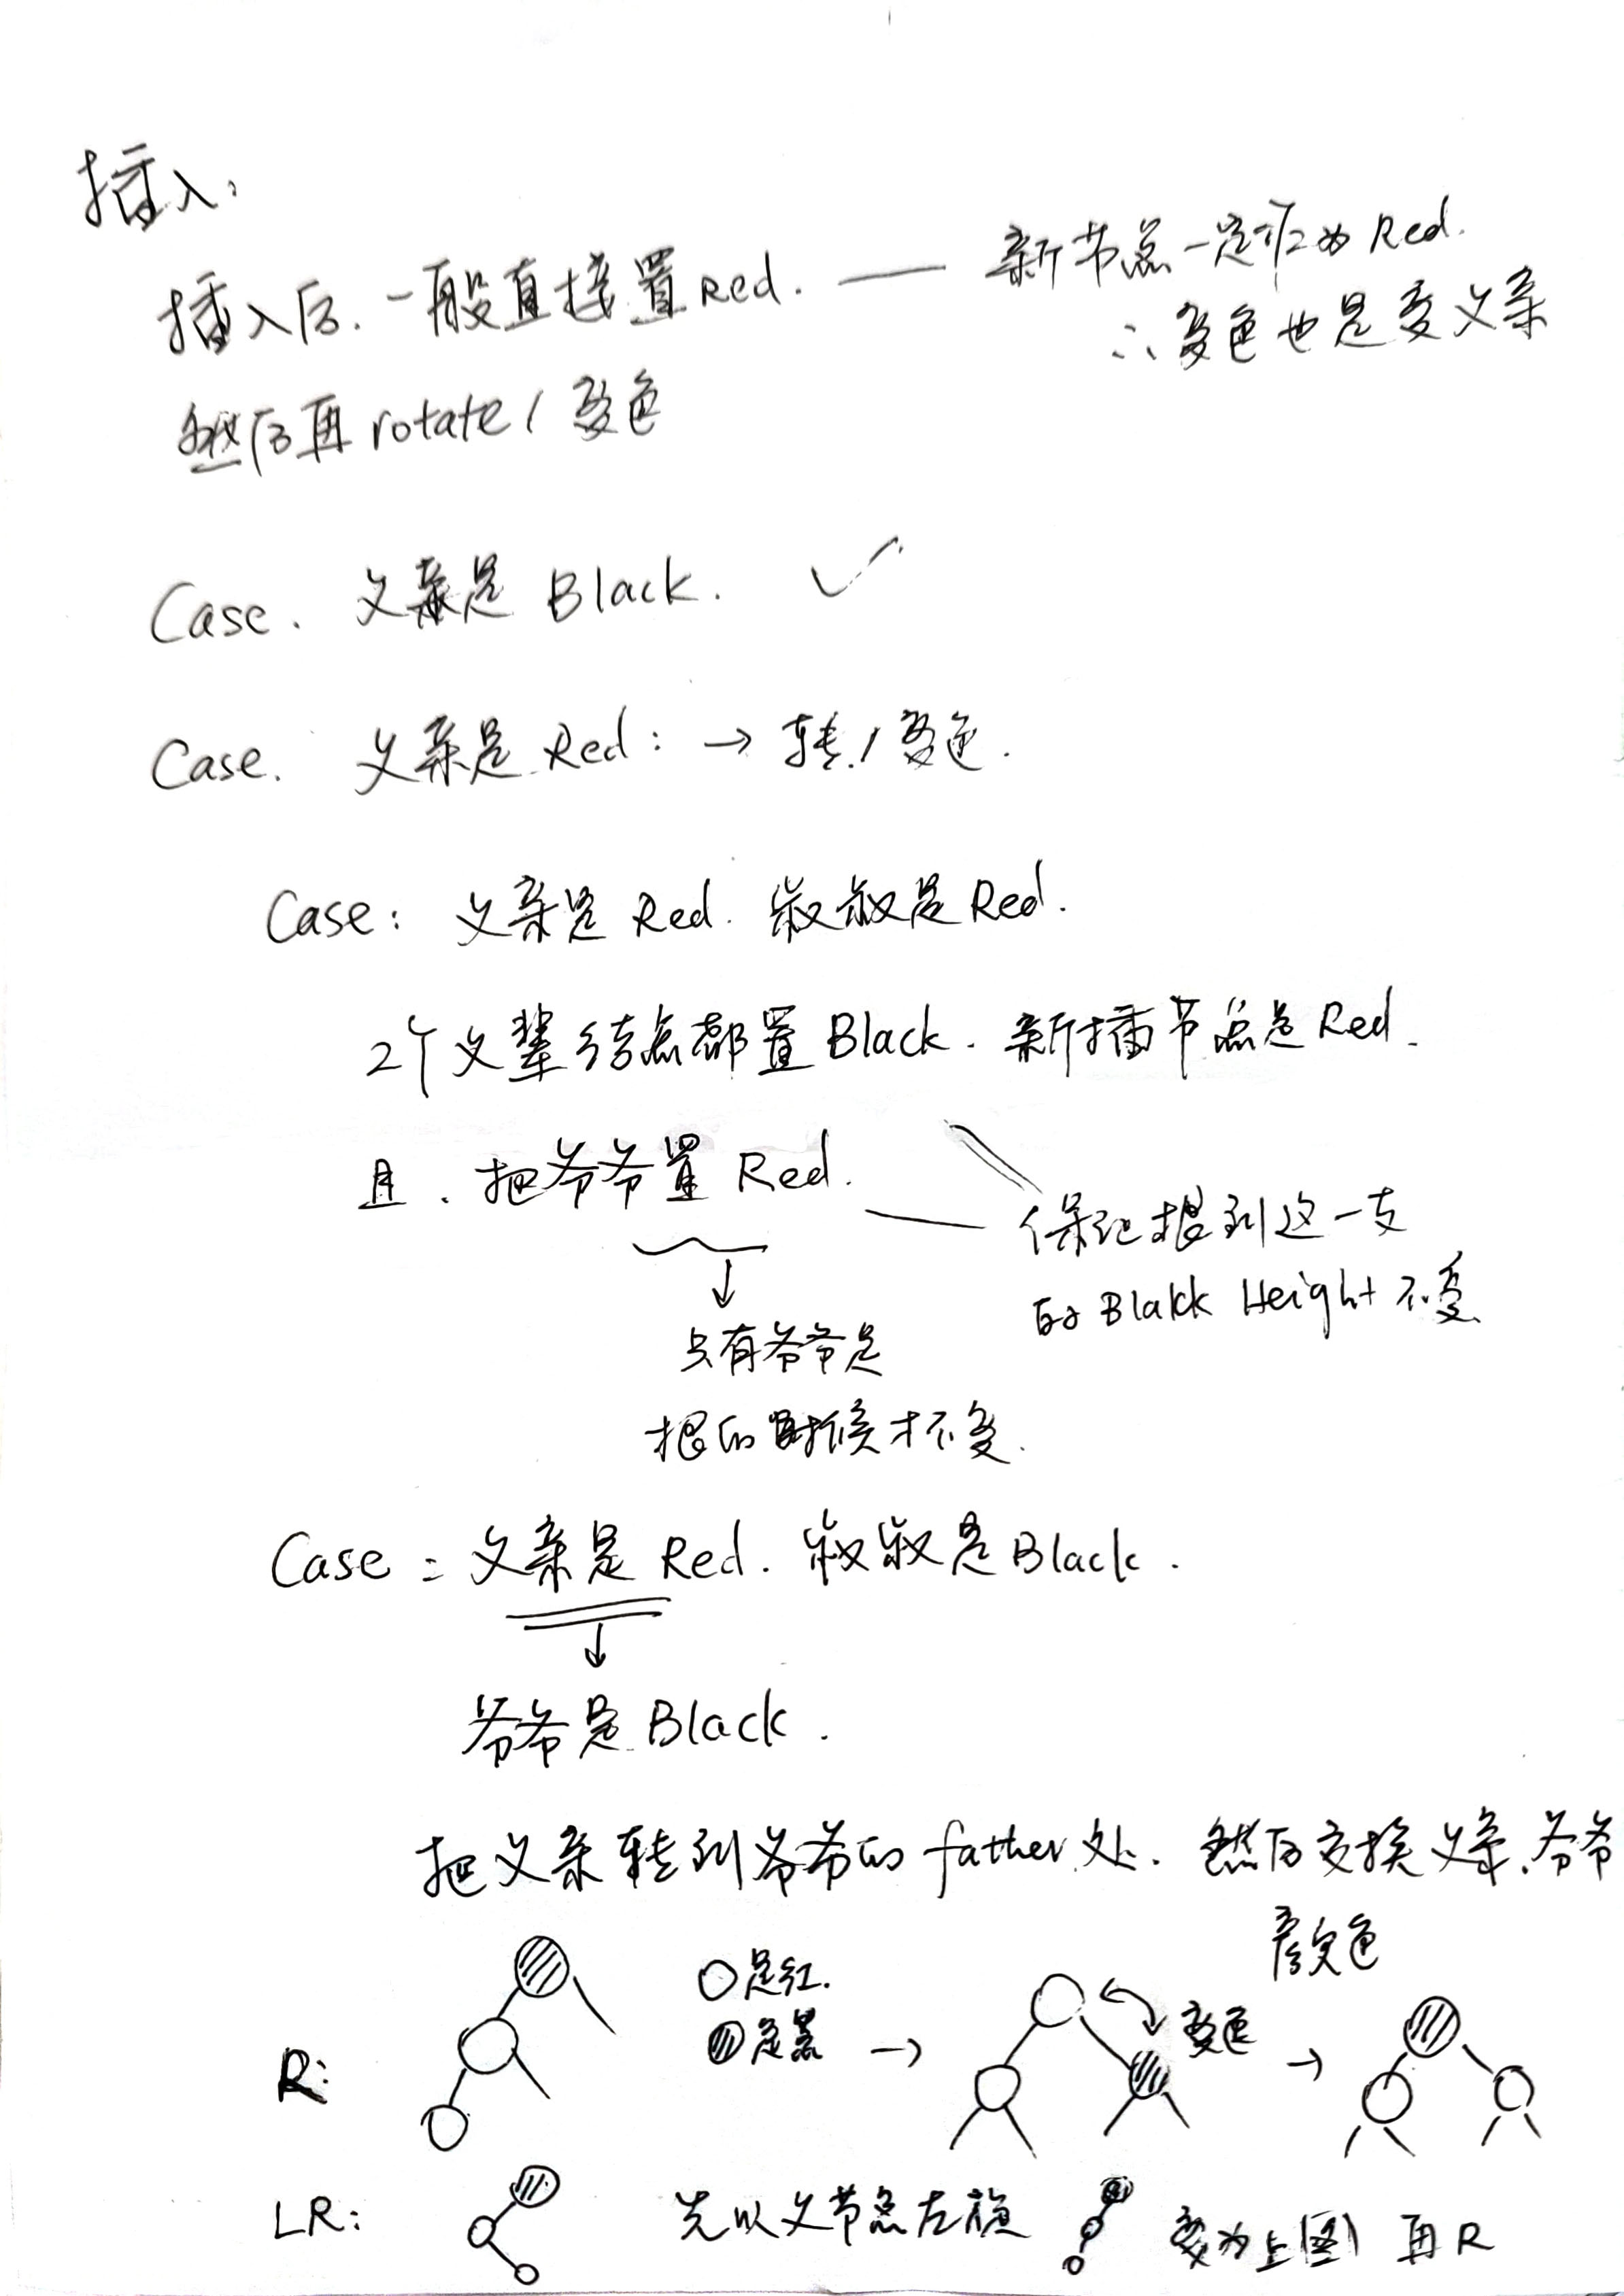 插入:
插入后.一般直接置Red. —— 新节点一定作为Red.
∴变色也是变父亲
然后再rotate/变色
Case. 父亲是 Black. ✓
Case. 父亲是 Red: → 转/变色.
Case: 父亲是 Red. 叔叔是Red.
2个父辈结点都置Black. 新插节点是Red.
且.把爷爷置 Red.
保证根到这一支
的 Blakk Height 不变
↓
只有爷爷是
根的时候才不变.
Case: 父亲是 Red. 叔叔是Black.
↓
爷爷是 Black.
把父亲转到爷爷的 father 处. 然后交换父亲.爷爷
颜色
○是红.
是黑 → 变色 →
R:
LR: 先以父节点左旋 变为上图 再R